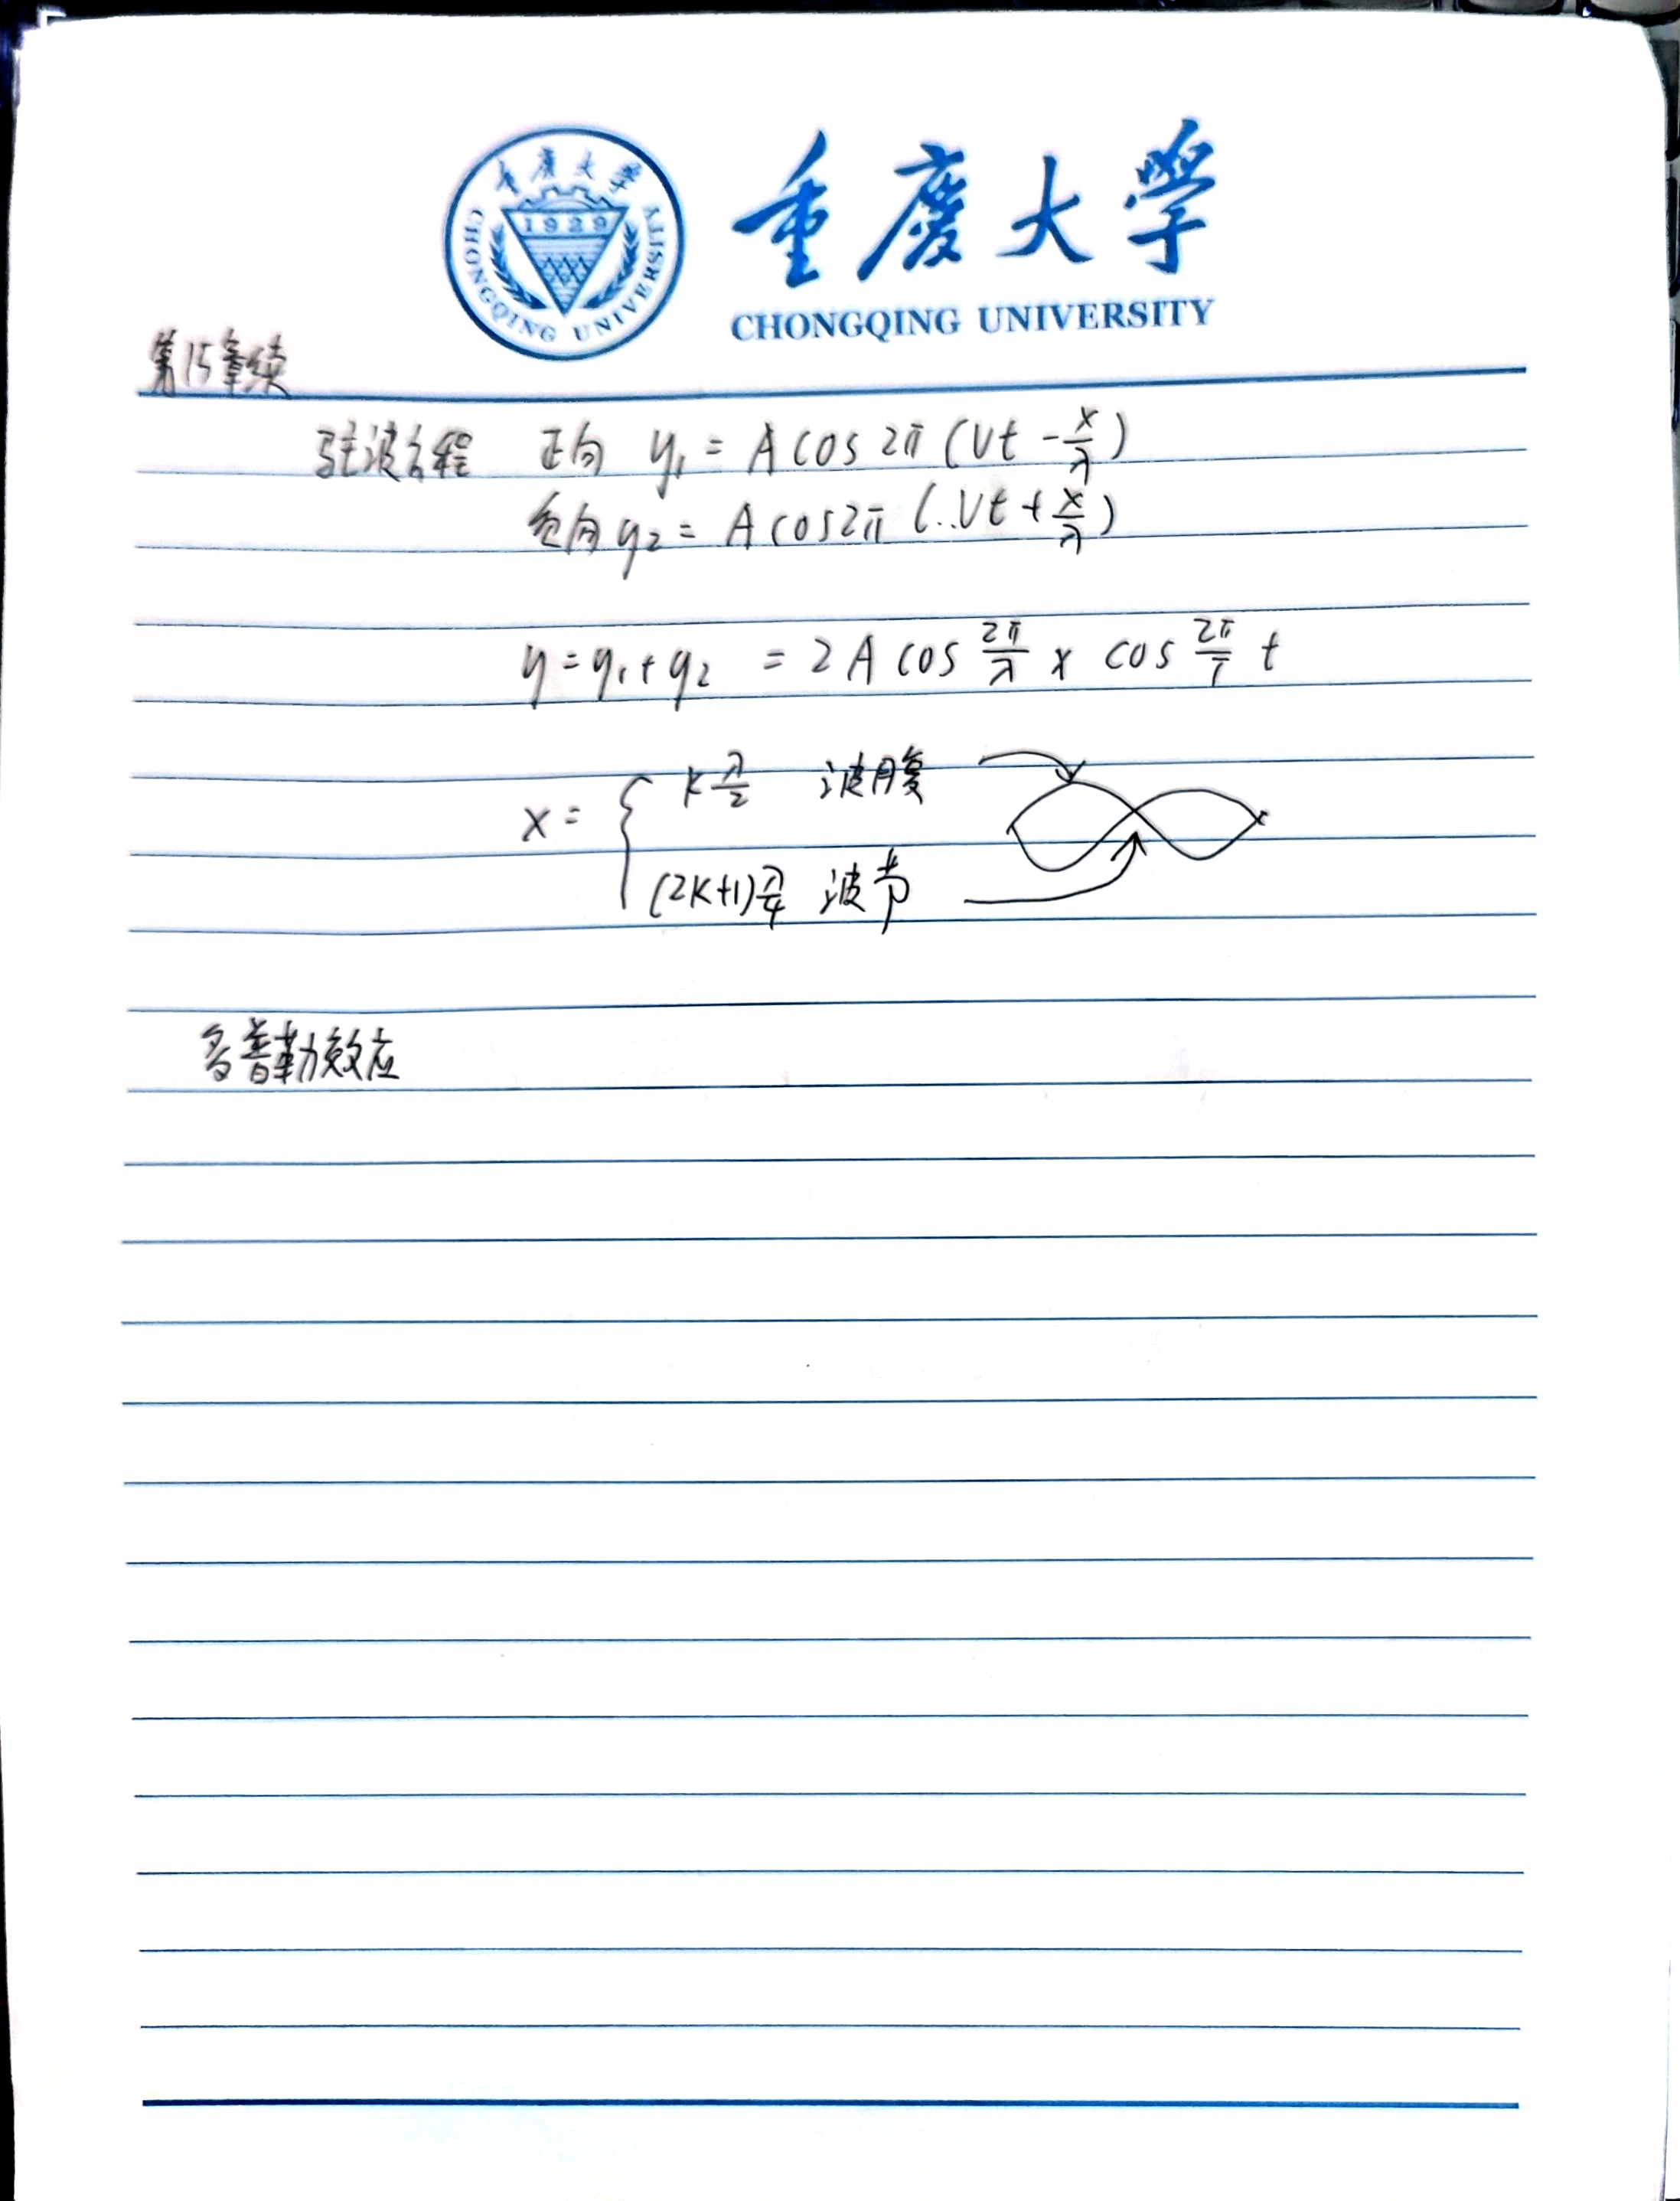 重慶大學
CHONGQING UNIVERSITY
1929
重慶大學
CHONGQING UNIVERSITY
第15章续
驻波方程 正向 y₁ = A cos 2π (νt - x/λ)
负向 y₂ = A cos 2π (..νt + x/λ)
y = y₁ + y₂ = 2 A cos 2π/λ x cos 2π/T t
x = { k λ/2 波腹
(2k+1) λ/4 波节
多普勒效应